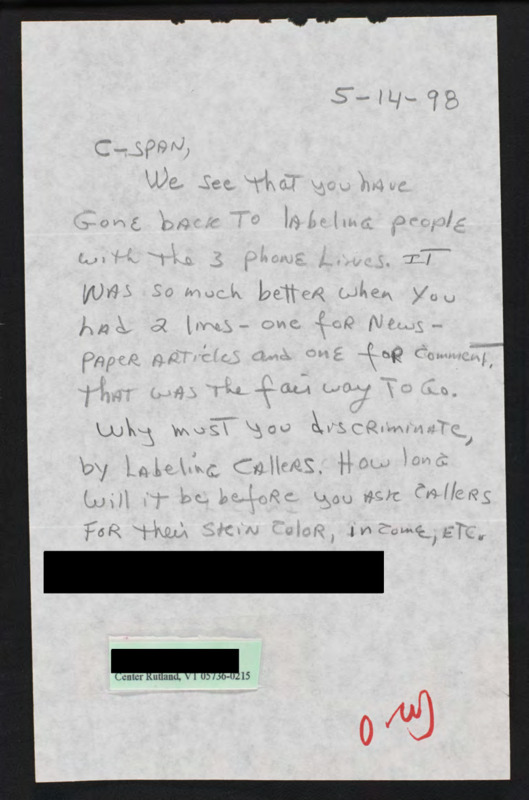 5-14-98
C-SPAN,
We see that you have
Gone back To labeling people
with the 3 phone Lines. IT
WAS so much better when you
had 2 lines - one for News-
PAPER ARTicles and one for comment.
that WAS the fair way To Go.
Why must you discriminate,
by Labeling CAllers. How long
will it be before you ASK CAllers
FOR their Skin Color, income, ETC.
Center Rutland, VT 05736-0215